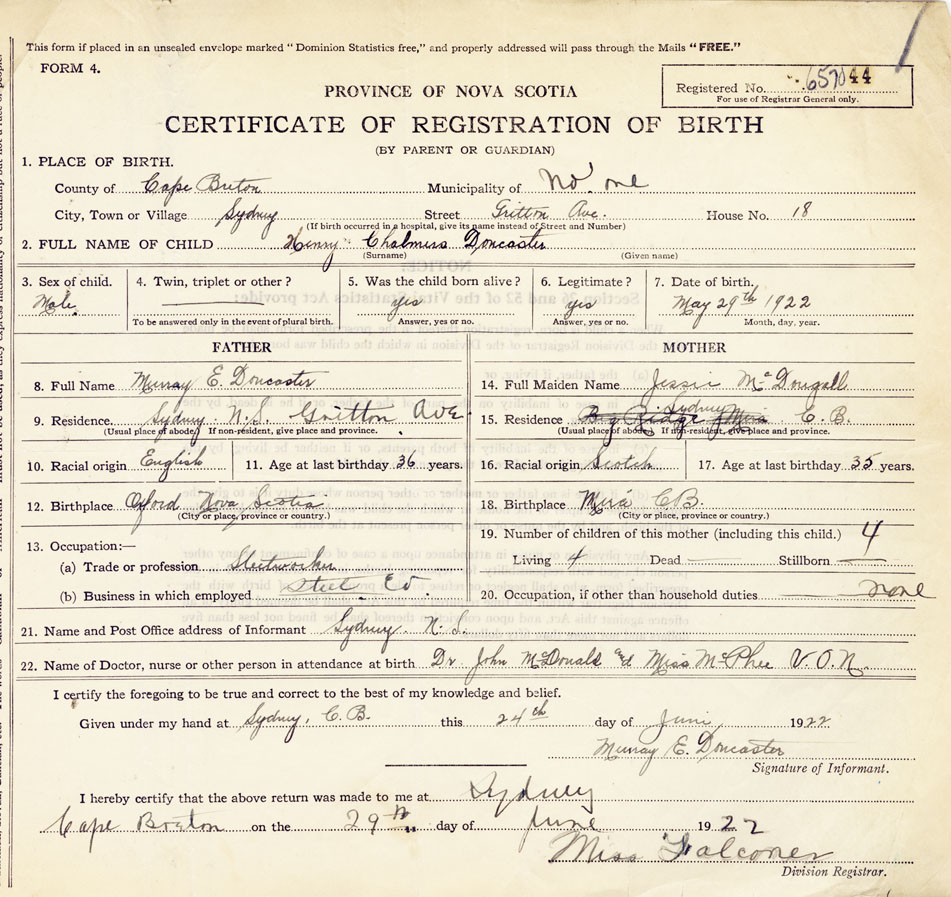 This form if placed in an unsealed envelope marked "Dominion Statistics free," and properly addressed will pass through the Mails "FREE."
FORM 4.
Registered No. 657044
For use of Registrar General only.
PROVINCE OF NOVA SCOTIA
CERTIFICATE OF REGISTRATION OF BIRTH
(BY PARENT OR GUARDIAN)
1. PLACE OF BIRTH.
County of Cape Breton Municipality of No. one
City, Town or Village Sydney Street Gritton Ave. House No. 18
(If birth occurred in a hospital, give its name instead of Street and Number)
2. FULL NAME OF CHILD Henry Chalmers Doncaster
(Surname) (Given name)
3. Sex of child. 4. Twin, triplet or other? 5. Was the child born alive? 6. Legitimate? 7. Date of birth.
Male. yes yes May 29th 1922
To be answered only in the event of plural birth. Answer, yes or no. Answer, yes or no. Month, day, year.
FATHER MOTHER
8. Full Name Murray E. Doncaster 14. Full Maiden Name Jessie McDougall
9. Residence. Sydney N.S. Gritton Ave. 15. Residence Big Ridge Mira Sydney C.B.
(Usual place of abode) If non-resident, give place and province. (Usual place of abode) If non-resident, give place and province.
10. Racial origin English 11. Age at last birthday 36 years. 16. Racial origin Scotch 17. Age at last birthday 35 years.
12. Birthplace Oxford Nova Scotia 18. Birthplace Mira C.B.
(City or place, province or country.) (City or place, province or country.)
13. Occupation:— 19. Number of children of this mother (including this child.) 4
(a) Trade or profession Steelworker Living 4 Dead — Stillborn —
(b) Business in which employed Steel Co 20. Occupation, if other than household duties none
21. Name and Post Office address of Informant Sydney N.S.
22. Name of Doctor, nurse or other person in attendance at birth Dr. John McDonald and Miss McPhee V.O.N.
I certify the foregoing to be true and correct to the best of my knowledge and belief.
Given under my hand at Sydney, C.B. this 24th day of June 1922
Murray E. Doncaster
Signature of Informant.
I hereby certify that the above return was made to me at Sydney
Cape Breton on the 29th day of June 1922
Miss Falconer
Division Registrar.